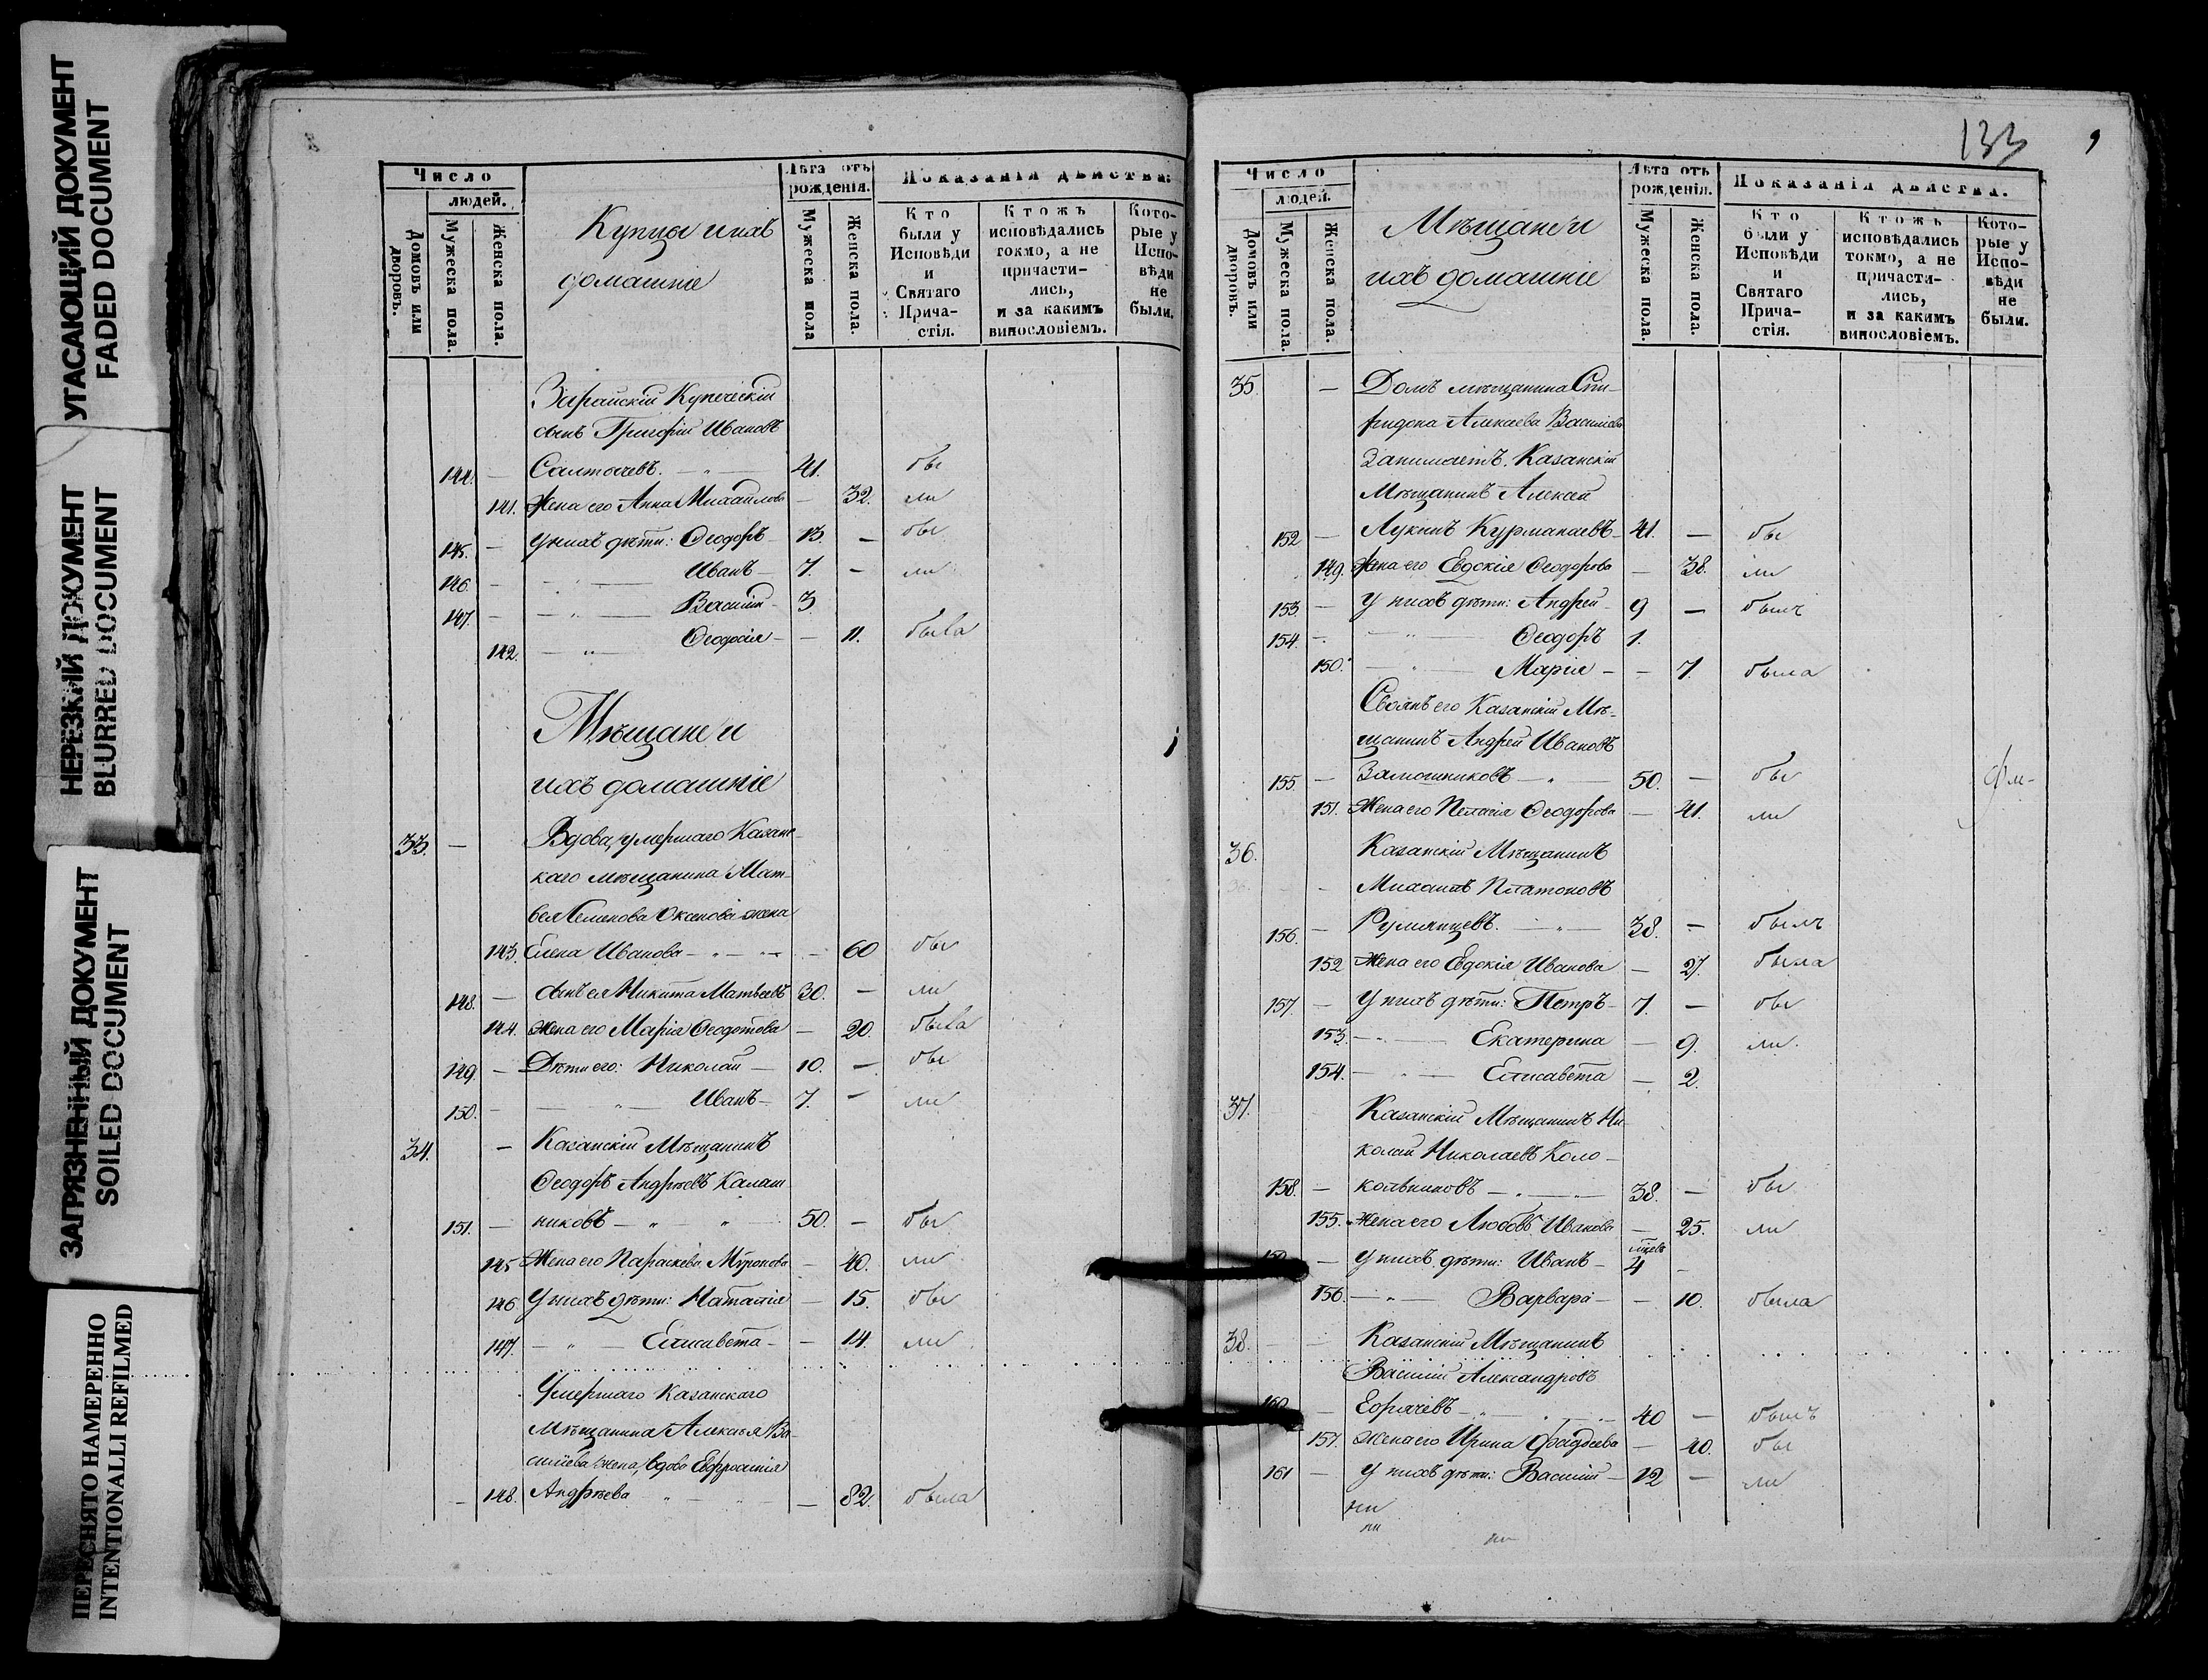 УГАСАЮЩИЙ ДОКУМЕНТ
FADED DOCUMENT
НЕРЕЗКИЙ ДОКУМЕНТ
BLURRED DOCUMENT
ЗАГРЯЗНЕННЫЙ ДОКУМЕНТ
SOILED DOCUMENT
ПЕРЕСНЯТО НАМЕРЕННО
INTENTIONALLI REFILMED
Число
людей.
Домовъ или дворовъ.
Мужеска пола.
Женска пола.
Купцы и ихъ
домашніе
Лѣта отъ рожденія.
Мужеска пола
Женска пола.
Показанія дѣйства.
Кто были у Исповѣди и Святаго Причастія.
Ктожъ исповѣдались токмо, а не причастились, и за какимъ винословіемъ.
Которые у Исповѣди не были.
Зарайскій Купеческій
сынъ Григорій Ивановъ
144. — Салтычевъ. — 41. бы
141. Жена его Анна Михайлова — 32. ли
145. — У нихъ дѣти: Ѳеодоръ — 13. — бы
146. — Иванъ — 7. — ли
147. — Василій — 3.
142. — Ѳеодосія — — 11. была
Мѣщане и
ихъ домашніе
33. — Вдова, умершаго Казанс-
каго мѣщанина Мат-
вея Семенова жена
143. Елена Иванова — — 60 бы
148. — сынъ ея Никита Матвеевъ 30. — ли
144. жена его Марія Ѳеодотова — 20. была
149. — Дѣти его: Николай — 10. — бы
150. — Иванъ — 7. — ли
34. — Казанскій Мѣщанинъ
Ѳеодоръ Андреевъ Калаш
151. — никовъ — " — " — 50. — бы
145 Жена его Параскева Миронова — 40. ли
146. У нихъ дѣти: Наталія — 15. бы
147. — " — Елисавета — — 14. ли
Умершаго Казанскаго
Мѣщанина Алексѣя Ва-
сильева жена, вдова Евфросинія
— 148. Андреева — 82. была
133
9
Число
людей.
Домовъ или дворовъ.
Мужеска пола.
Женска пола.
Мѣщане и
ихъ домашніе
Лѣта отъ рожденія.
Мужеска пола.
Женска пола.
Показанія дѣйства.
Кто были у Исповѣди и Святаго Причастія.
Ктожъ исповѣдались токмо, а не причастились, и за какимъ винословіемъ.
Которые у Исповѣди не были.
35. — Домъ мѣщанина Спи-
ридона
занимаетъ. Казанскій
Мѣщанинъ Алексей
152 — Лукинъ Курманаевъ — 41. — бы
149. Жена его Евдокія Ѳеодорова — 38. ли
153. — У нихъ дѣти: Андрей — 9 — былъ
154. — Ѳеодоръ 1.
150. — Марія — — 7. была
Своякъ его Казанскій Мѣ-
щанинъ Андрей Ивановъ
155. — Замошниковъ — " — 50. — бы
151. Жена его Пелагія Ѳеодорова — 41. ли
36. Казанскій Мѣщанинъ
— Михаилъ Платоновъ
156. — Румянцевъ. — " — 38. — былъ
152 Жена его Евдокія Иванова — 27. была
157. — У нихъ дѣти: Петръ — 7. — бы
153. — Екатерина — 9. ли.
154. — Елисавета — 2.
37. Казанскій Мѣщанинъ Ни
колай Николаевъ Коло-
158. — кольниковъ — 38. — бы
155. Жена его Любовь Иванова — 25. ли
159 — У нихъ дѣти: Иванъ — 4 —
156. — " — Варвара — — 10. была
38. — — Казанскій Мѣщанинъ
Василій Александровъ
160 — — 40 — былъ
157. Жена его Ирина Фаддеева — 40. бы
161 — У нихъ дѣти: Василій — 12 — ли